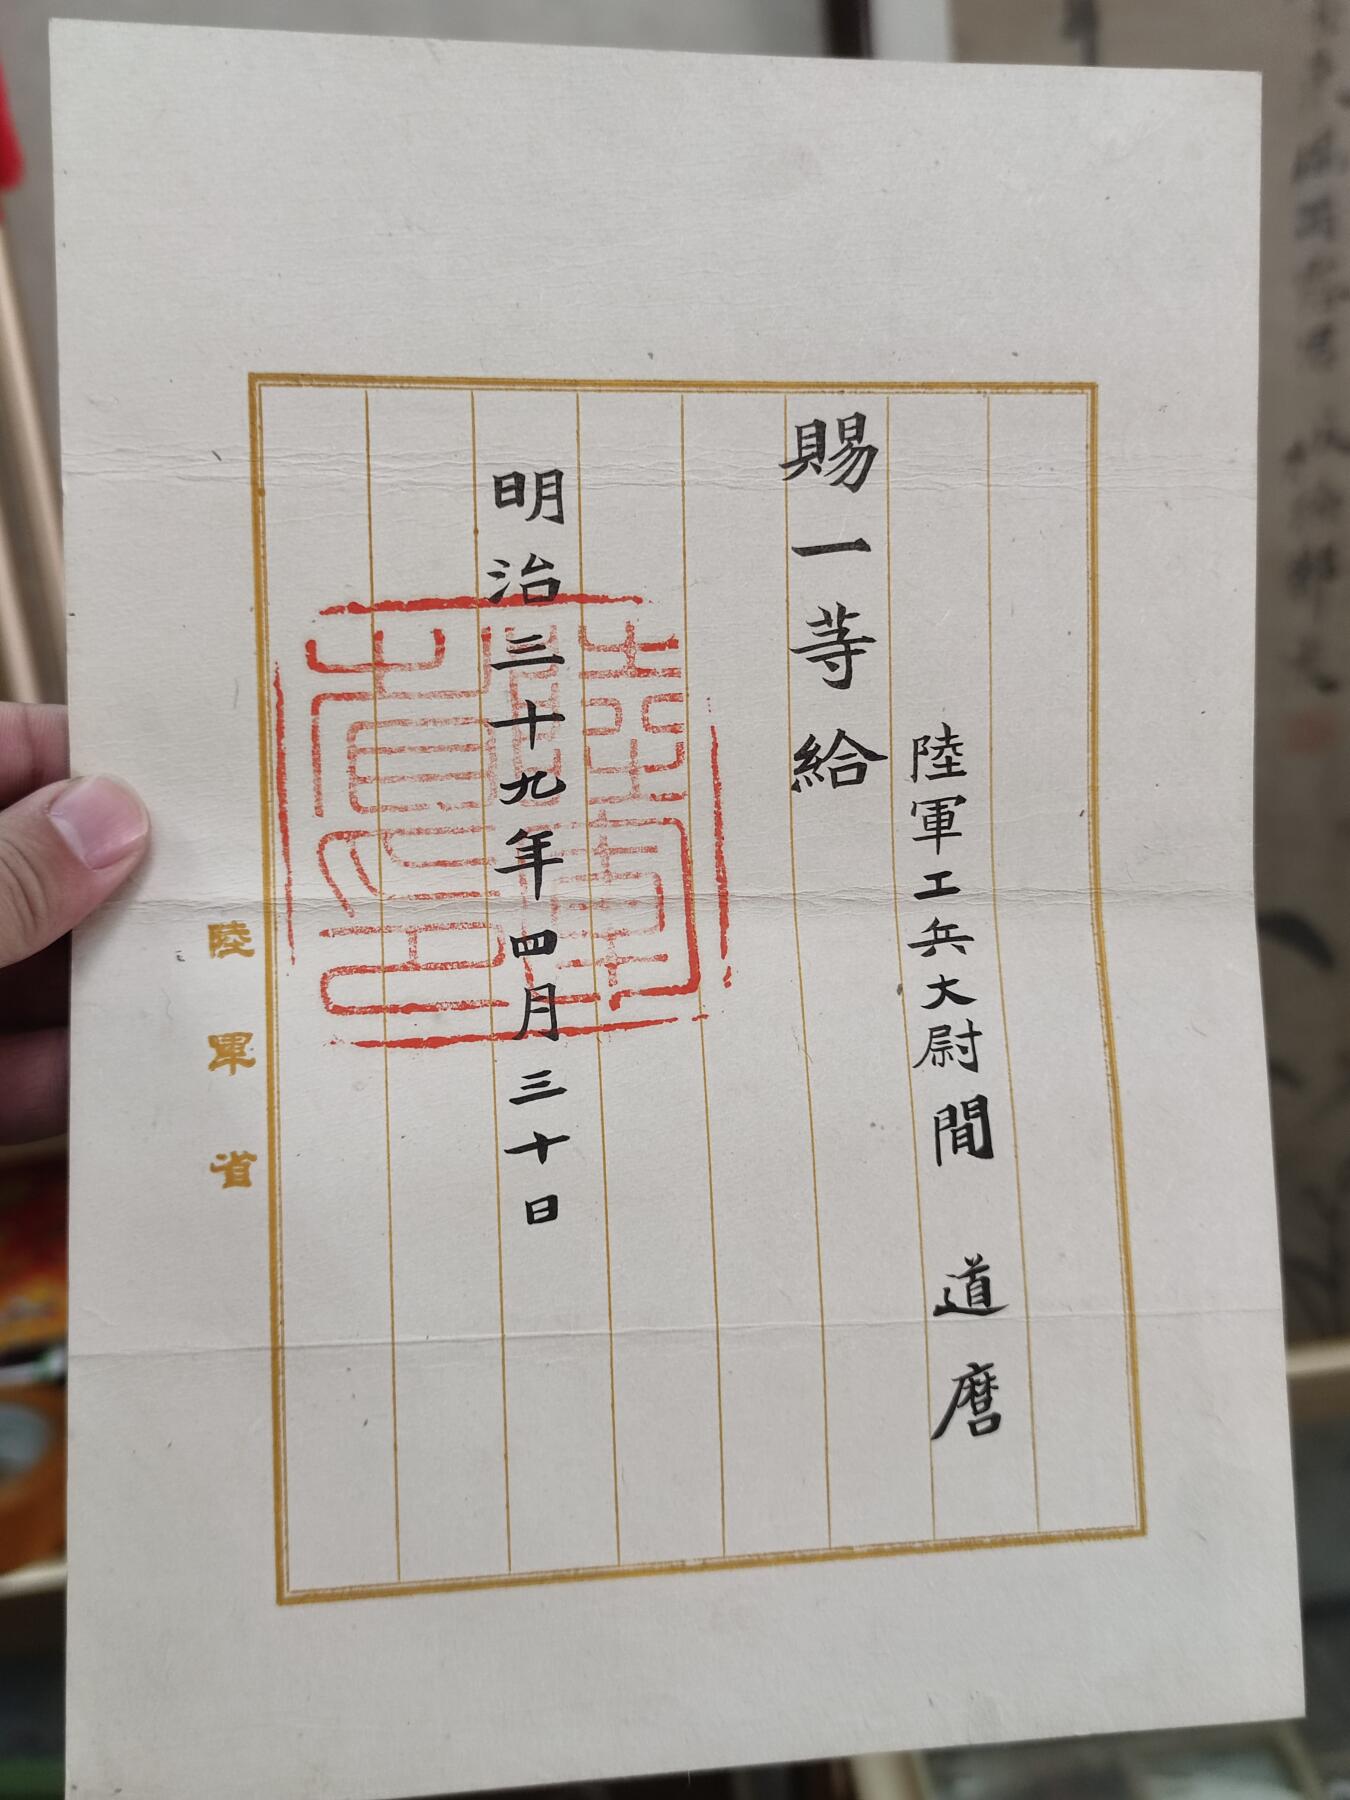 陸軍工兵大尉間 道麿
賜一等給
明治三十九年四月三十日
陸軍省印
陸軍省